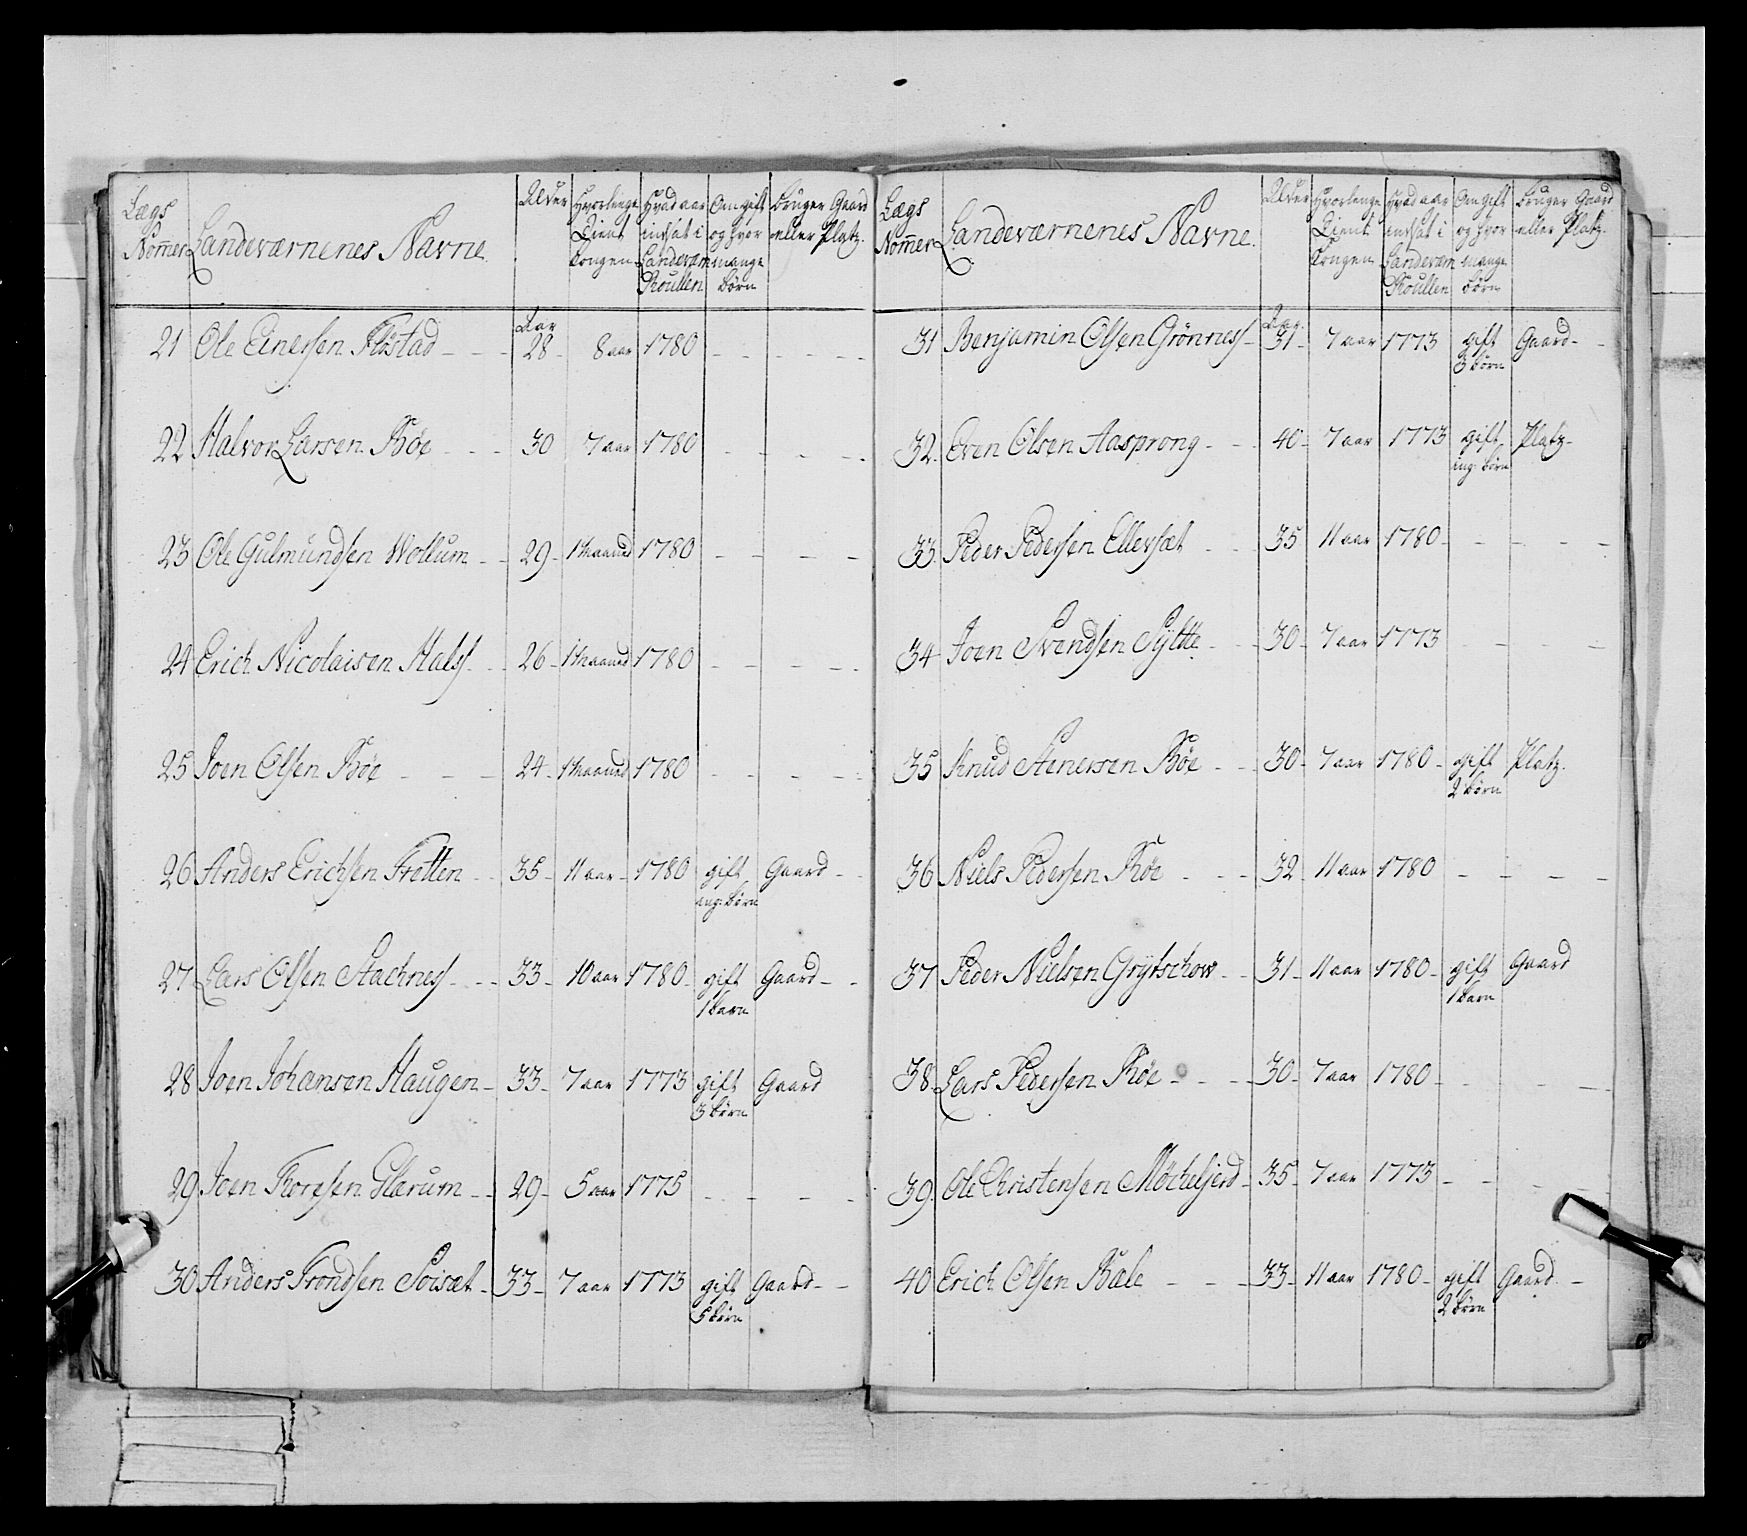 Lægs Nommer Landeværnenes Navne. Alder Hvorlenge Tient Kongen Hvad aar indsat i Landeværn Roullen Om gift og hvor mange børn bruger Gaard eller Platz.
Aar
21 Ole Einersen Fløstad - - 28 - 8 aar 1780 - - - -
22 Halvor Larsen Bøe - - - 30 7 aar 1780 - - - -
23 Ole Gulmundsen Wollum - - 29 - 1 Maaned 1780 - - - -
24 Erich Nicolaisen Hals - - 26 - 1 Maaned 1780 - - - -
25 Joen Olsen Bøe - - - 24 - 1 Maaned 1780 - - - -
26 Anders Erichsen Tretten - - 35 - 11 aar - 1780 gift Gaard - -
ing: børn
27 Lars Olsen Stachnes - - - 33 - 10 aar 1780 - gift Gaard - -
1 barn
28 Joen Johansen Haugen - 33 - 7 aar 1773 gift Gaard
3 børn
29 Joen Toresen Glærum - - 29 - 5 aar 1775 - - - -
30 Anders Trondsen Soisæt - 33 - 7 aar 1773 gift Gaard - -
5 børn
Lægs Nommer Landeværnenes Navne. Alder Hvorlenge Tient Kongen Hvad aar indsat i Landeværn Roullen Om gift og hvor mange børn bruger Gaard eller Platz.
Aar
31 Benjamin Olsen Grønnes - 31 - 7 aar 1773 gift Gaard - -
3 børn
32. Even Olsen Aasprong - - 40 - 7 aar 1773 gift Platz -
ing: børn
33. Peder Pedersen Ellersæt - - 35 11 aar 1780 - - - -
34 Joen Svendsen Sÿltte - - 30 - 7 aar 1773 - - - -
35 Knud Stenersen Bøe - - 30 - 7 aar 1780 - gift Platz.
2 børn
36 Niels Pedersen Bøe - - - 32 11 aar 1780 - - - -
37 Peder Nielsen Grÿtschow - - 31 - 11 aar 1780 - gift Gaard
1 barn
38 Lars Pedersen Bøe - - - 30 - 7 aar 1780 - - - -
39. Ole Christensen - 35 - 7 aar 1773 - - - -
40 Erich Olsen Bale - - - 33 - 11 aar 1780 - gift Gaard -
2 børn